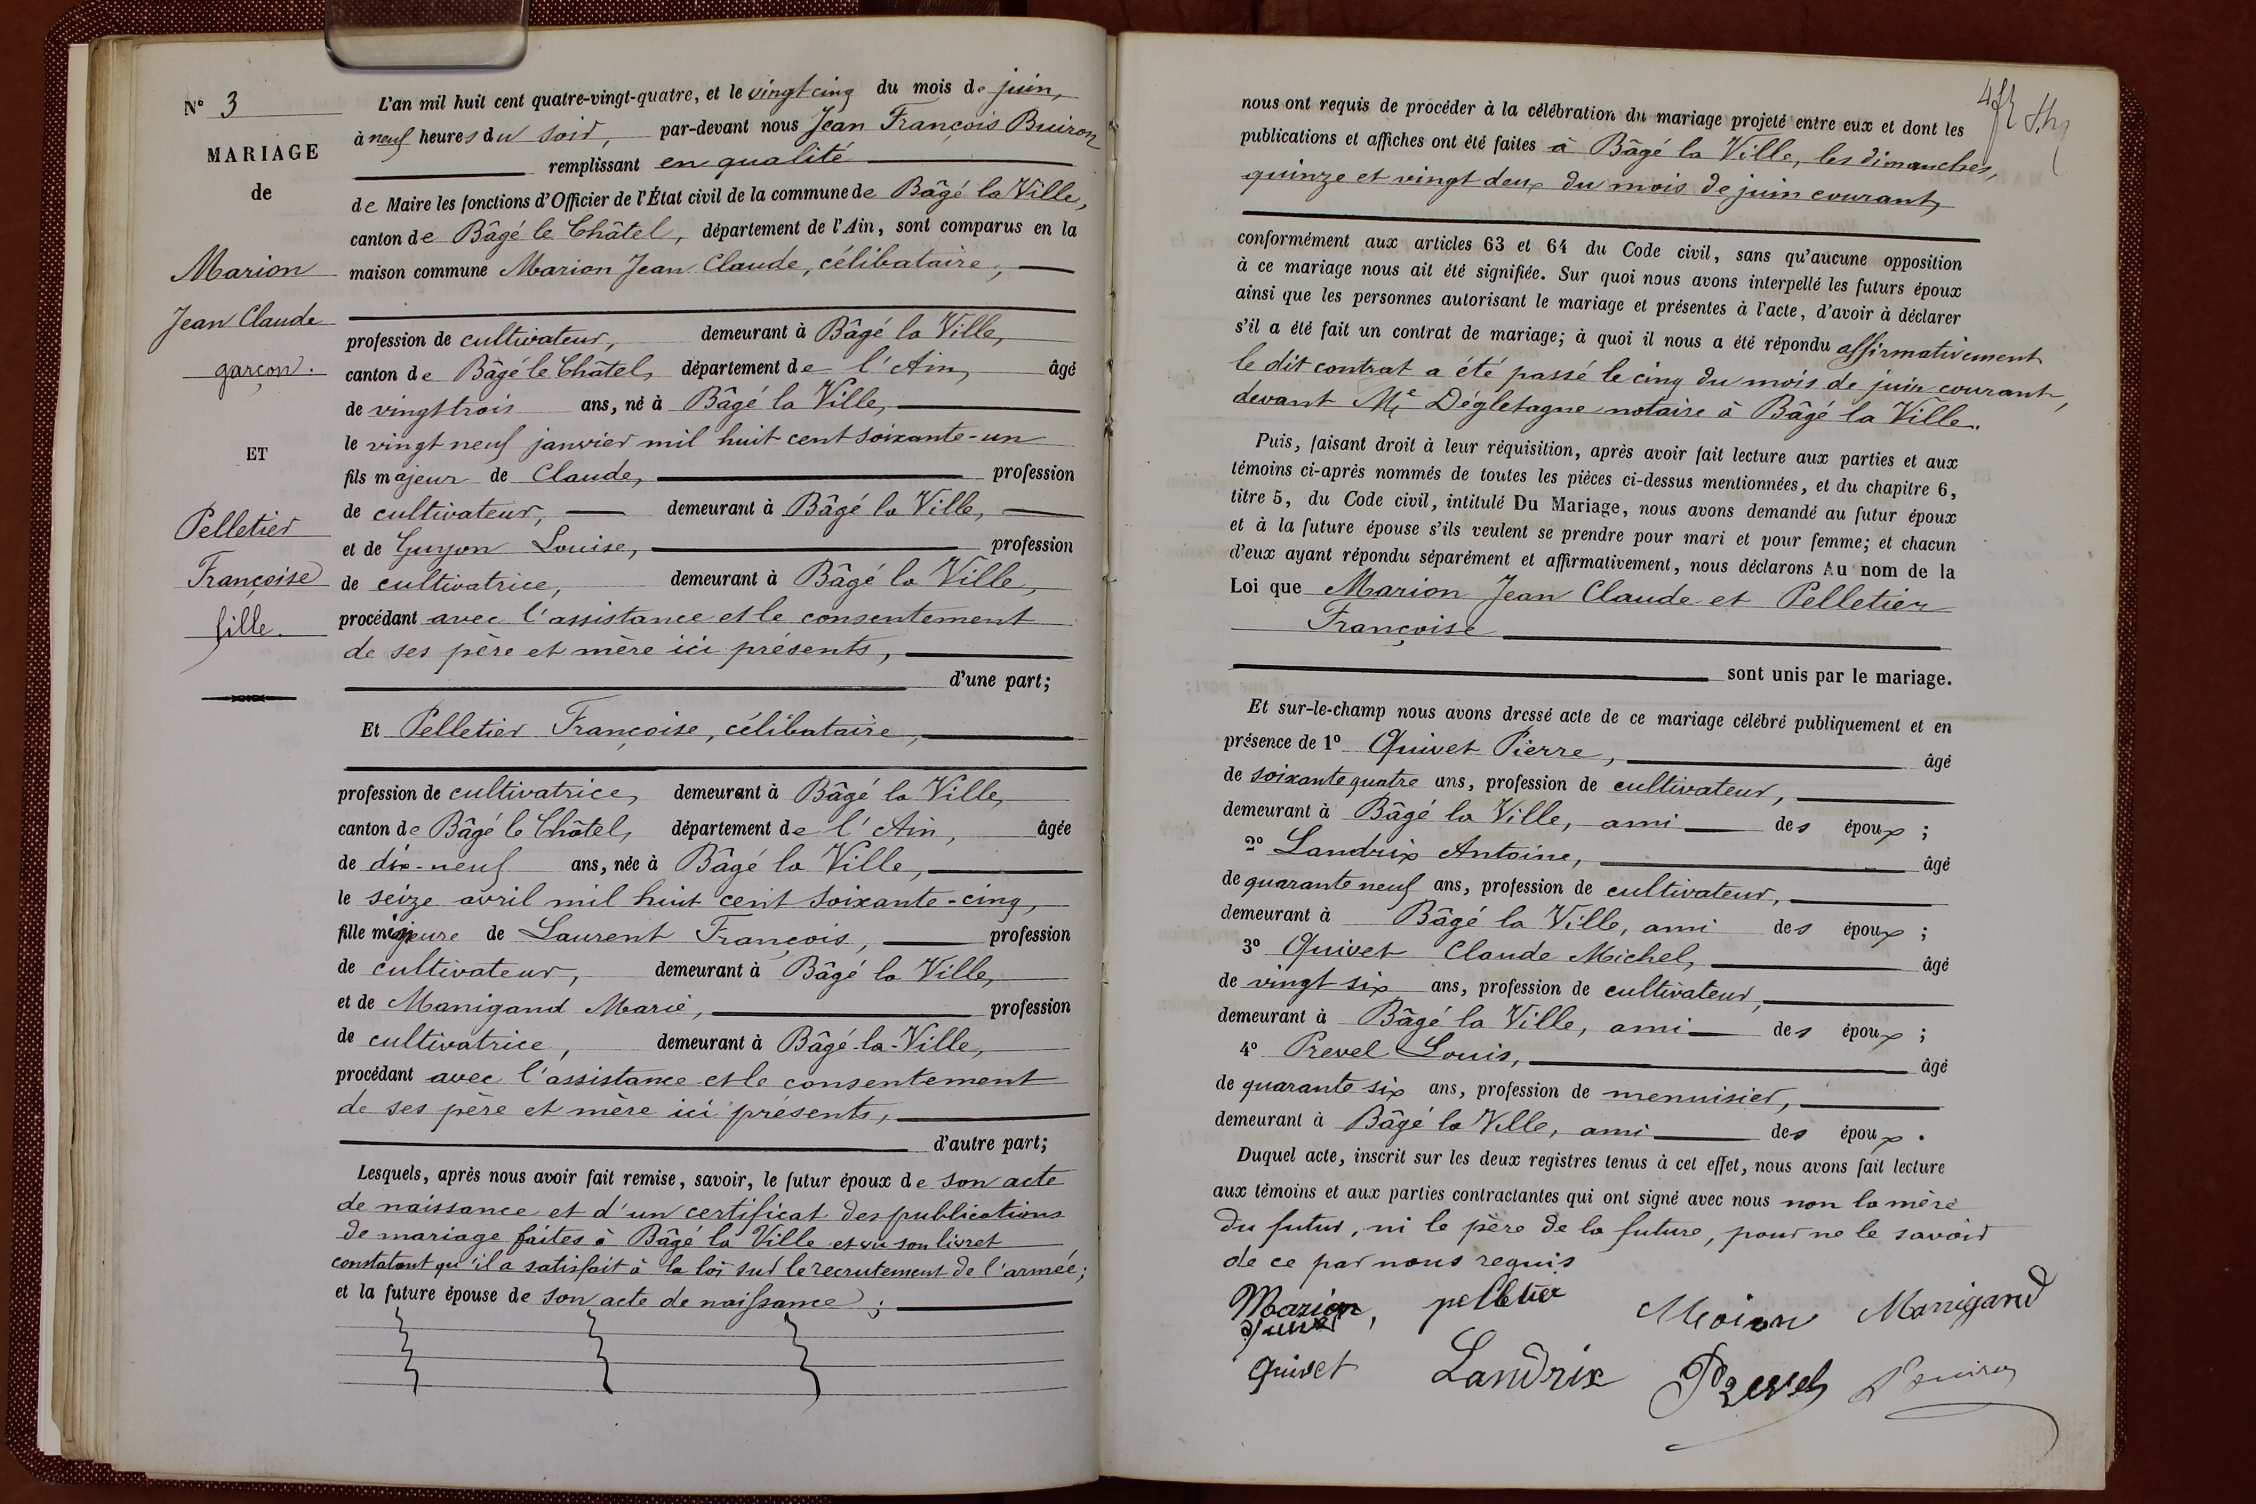 N° 3
MARIAGE
de
Marion
Jean Claude
garçon.
ET
Pelletier
Françoise
fille.
L'an mil huit cent quatre-vingt-quatre, et le vingt cinq du mois de juin,
à neuf heures du soir, par-devant nous Jean François Buiron
remplissant en qualité
de Maire les fonctions d'Officier de l'État civil de la commune de Bâgé la Ville,
canton de Bâgé le Châtel, département de l'Ain, sont comparus en la
maison commune Marion Jean Claude, célibataire,
profession de cultivateur, demeurant à Bâgé la Ville,
canton de Bâgé le Châtel, département de l'Ain, âgé
de vingt trois ans, né à Bâgé la Ville,
le vingt neuf janvier mil huit cent soixante-un
fils majeur de Claude, profession
de cultivateur, demeurant à Bâgé la Ville,
et de Guyon Louise, profession
de cultivatrice, demeurant à Bâgé la Ville,
procédant avec l'assistance et le consentement
de ses père et mère ici présents,
d'une part;
Et Pelletier Françoise, célibataire,
profession de cultivatrice, demeurant à Bâgé la Ville,
canton de Bâgé le Châtel, département de l'Ain, âgée
de dix-neuf ans, née à Bâgé la Ville,
le seize avril mil huit cent soixante-cinq,
fille de Laurent François, profession
de cultivateur, demeurant à Bâgé la Ville,
et de Manigand Marie, profession
de cultivatrice, demeurant à Bâgé-la-Ville,
procédant avec l'assistance et le consentement
de ses père et mère ici présents,
d'autre part;
Lesquels, après nous avoir fait remise, savoir, le futur époux de son acte
de naissance et d'un certificat des publications
de mariage faites à Bâgé la Ville et vu son livret
constatant qu'il a satisfait à la loi sur le recrutement de l'armée;
et la future épouse de son acte de naissance;
nous ont requis de procéder à la célébration du mariage projeté entre eux et dont les
publications et affiches ont été faites à Bâgé la Ville, les dimanches,
quinze et vingt deux du mois de juin courant,
conformément aux articles 63 et 64 du Code civil, sans qu'aucune opposition
à ce mariage nous ait été signifiée. Sur quoi nous avons interpellé les futurs époux
ainsi que les personnes autorisant le mariage et présentes à l'acte, d'avoir à déclarer
s'il a été fait un contrat de mariage; à quoi il nous a été répondu affirmativement
le dit contrat a été passé le cinq du mois de juin courant,
devant Me Dégletagne notaire à Bâgé la Ville.
Puis, faisant droit à leur réquisition, après avoir fait lecture aux parties et aux
témoins ci-après nommés de toutes les pièces ci-dessus mentionnées, et du chapitre 6,
titre 5, du Code civil, intitulé Du Mariage, nous avons demandé au futur époux
et à la future épouse s'ils veulent se prendre pour mari et pour femme; et chacun
d'eux ayant répondu séparément et affirmativement, nous déclarons Au nom de la
Loi que Marion Jean Claude et Pelletier
Françoise
sont unis par le mariage.
Et sur-le-champ nous avons dressé acte de ce mariage célébré publiquement et en
présence de 1° Quivet Pierre, âgé
de soixante quatre ans, profession de cultivateur,
demeurant à Bâgé la Ville, ami des époux;
2° Landrix Antoine, âgé
de quarante neuf ans, profession de cultivateur,
demeurant à Bâgé la Ville, ami des époux;
3° Quivet Claude Michel, âgé
de vingt six ans, profession de cultivateur,
demeurant à Bâgé la Ville, ami des époux;
4° Prevel Louis, âgé
de quarante six ans, profession de menuisier,
demeurant à Bâgé la Ville, ami des époux.
Duquel acte, inscrit sur les deux registres tenus à cet effet, nous avons fait lecture
aux témoins et aux parties contractantes qui ont signé avec nous non la mère
du futur, ni le père de la future, pour ne le savoir
de ce par nous requis
Marion, pelletier Manigand
Quivet Landrix Prevel Buiron